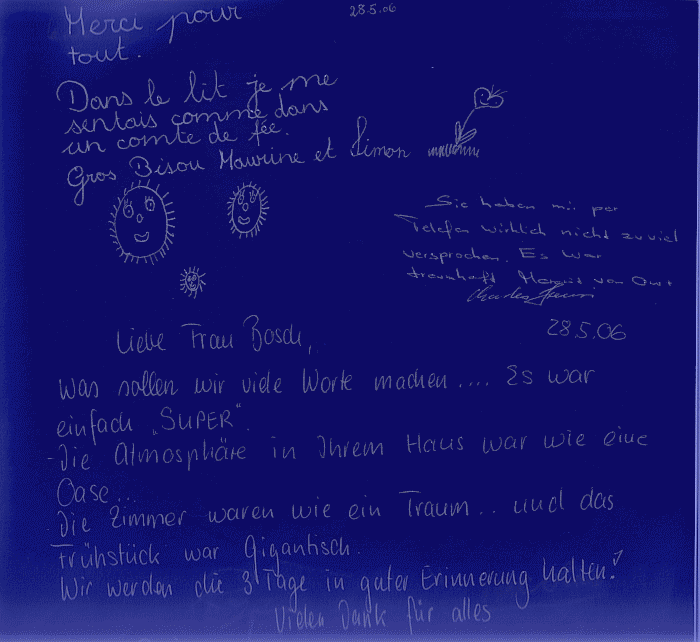 Merci pour
28.5.06
tout.
Dans le lit je me
sentais comme dans
un comte de fée.
Gros Bisou Maurine et Simon
Sie haben mir per
Telefon wirklich nicht zuviel
versprochen. Es war
traumhaft Margrit von
Charles
28.5.06
Liebe Frau Bosch,
Was sollen wir viele Worte machen.... Es war
einfach „SUPER".
-Die Atmosphäre in Ihrem Haus war wie eine
Oase...
-Die Zimmer waren wie ein Traum.. und das
Frühstück war Gigantisch.
Wir werden die 3 Tage in guter Erinnerung halten!
Vielen Dank für alles